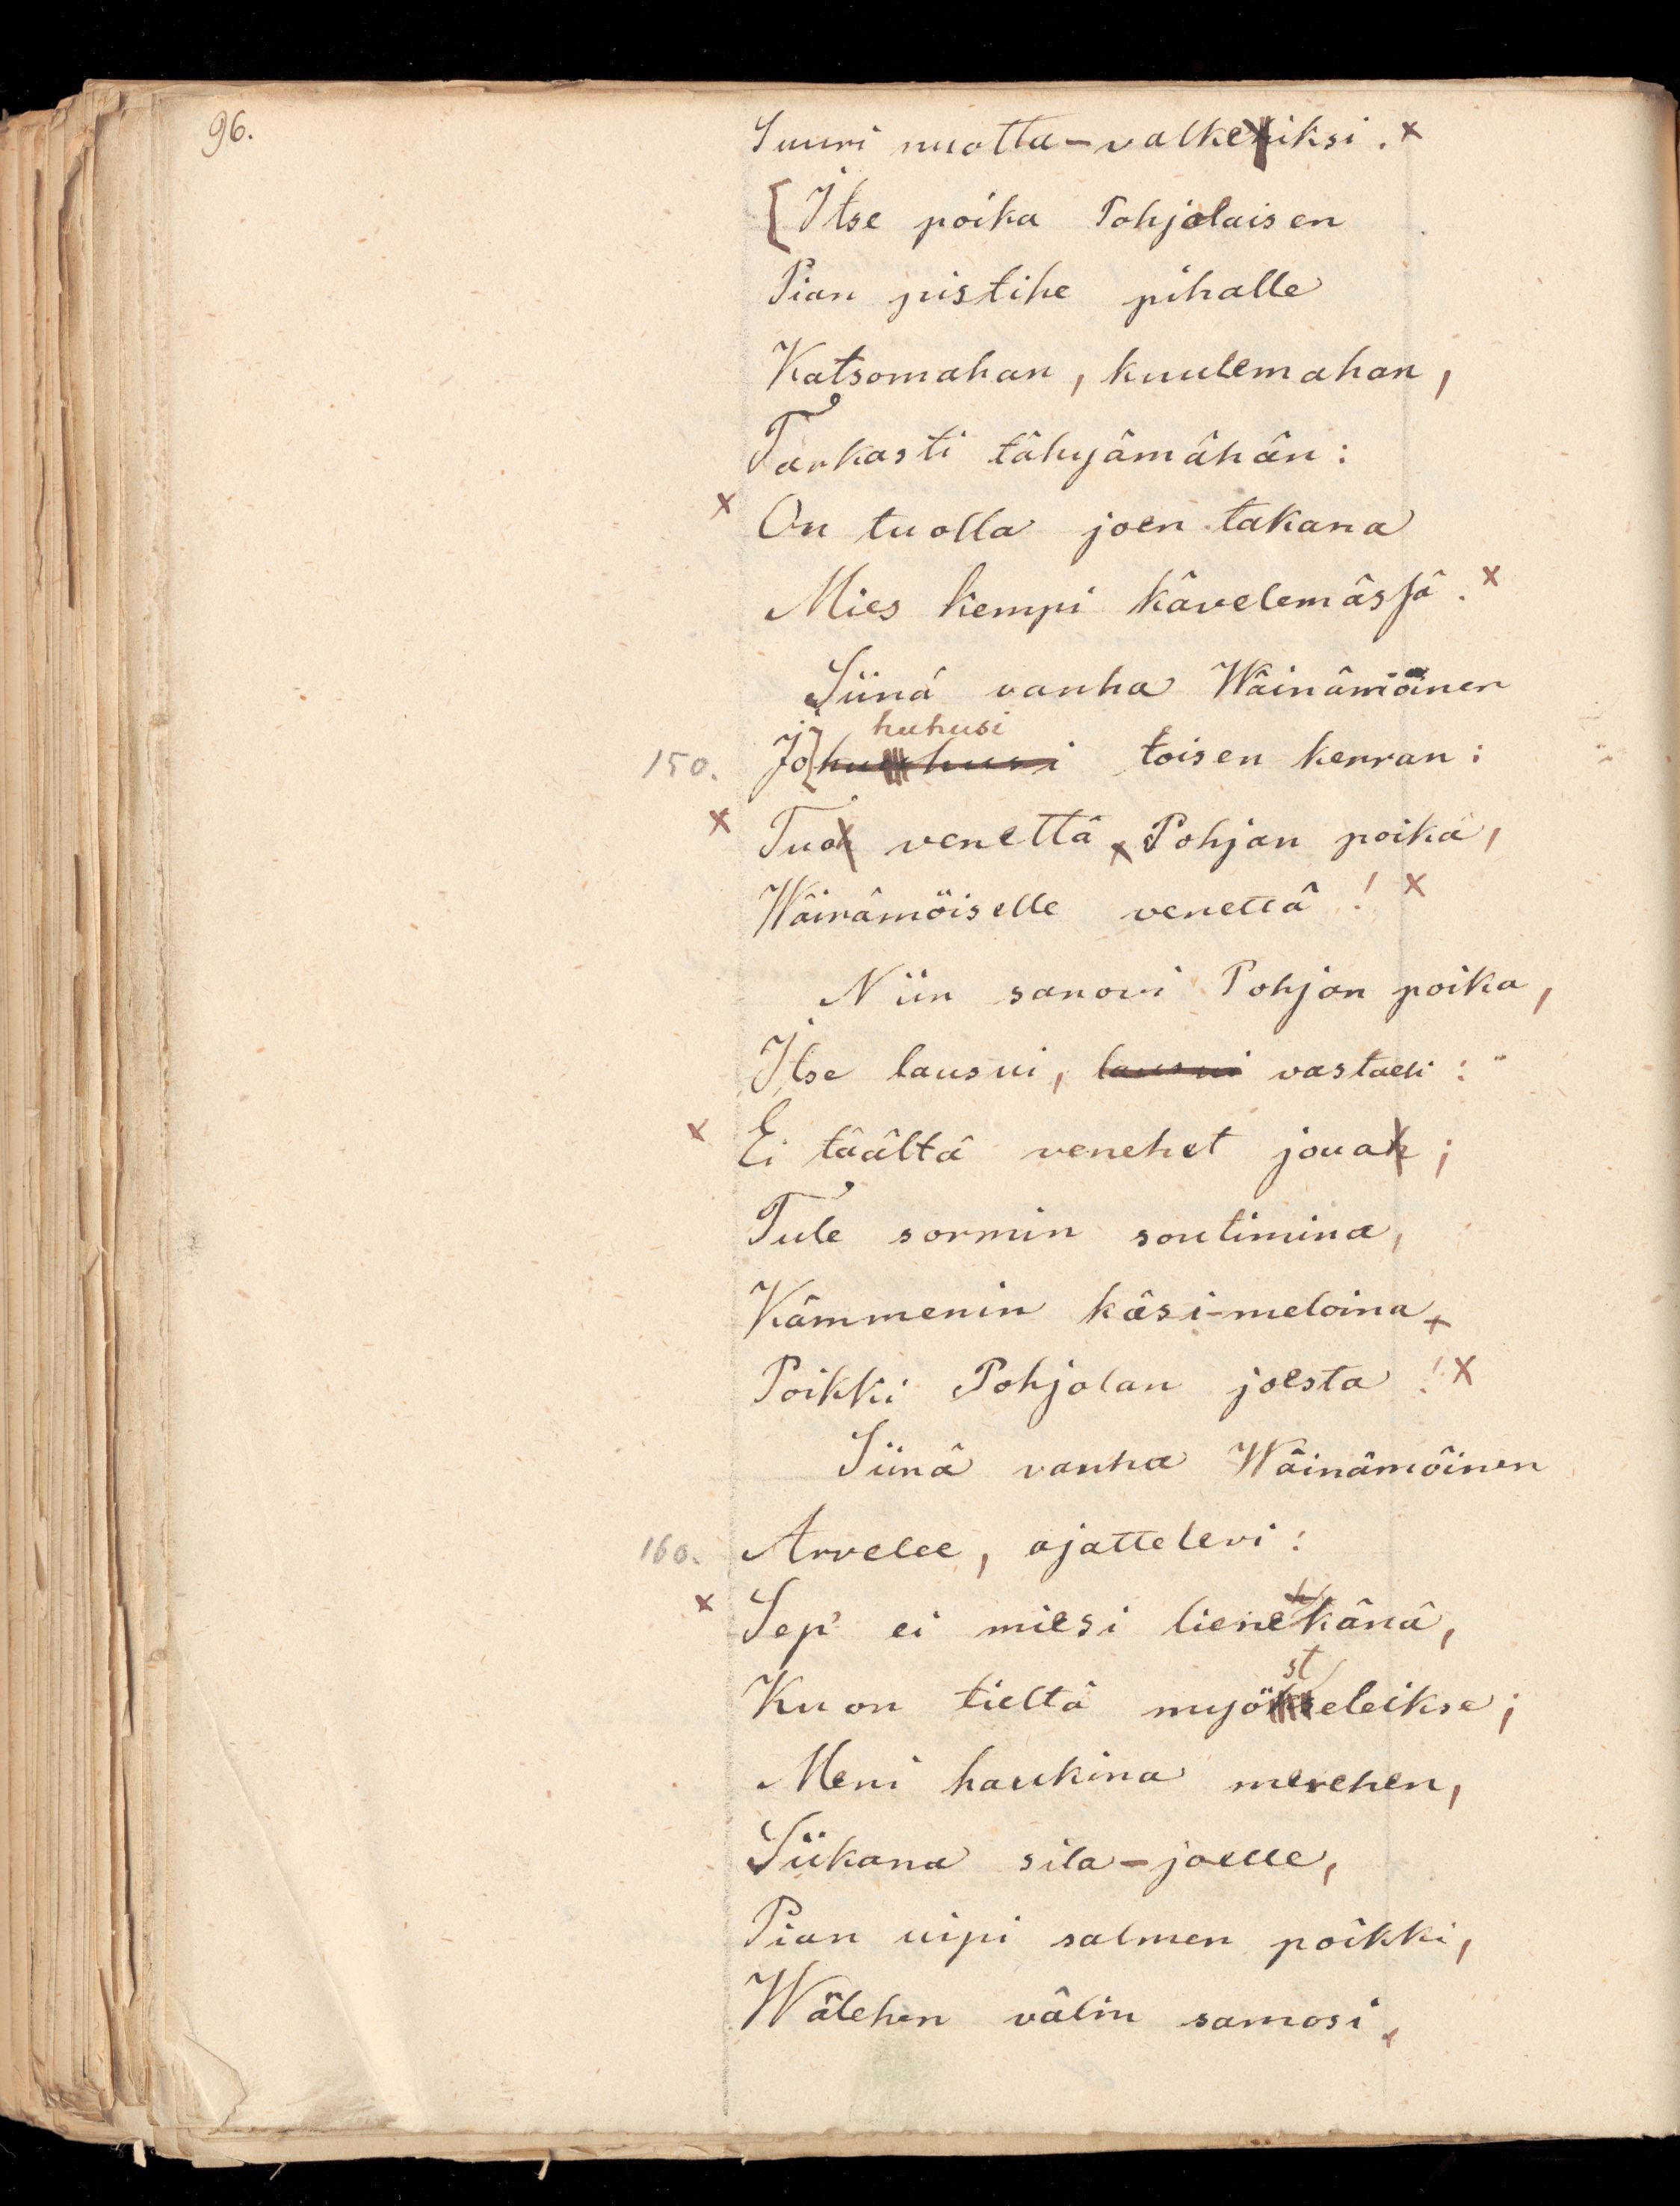 96.
Suuri nuotta-valkeiksi. x
[Itse poika Pohjolaisen
Pian pistihe pihalle
Katsomahan, kuulemahan,
Tarkasti tähyämähän:
x On tuolla joen takana
Mies hempi kävelemässä. x
Siinä vanha Wäinämöinen
huhusi
150. Jo] huhusi toisen kerran:
x Tuo venettä x Pohjan poika,
Wäinämöiselle venettä! x
Niin sanovi Pohjan poika,
Itse lausui, lausui vastaeli:"
x Ei täältä venehet joua;
Tule sormin soutimina,
Kämmenin käsi-meloina x
Poikki Pohjolan joesta! x
Siinä vanha Wäinämöinen
160. Arvelee, ajattelevi:
x Sep' ei miesi lienekänä,
st
Ku on tieltä myöeleikse;
Meni haukina merehen,
Siikana sila-joelle,
Pian uipi salmen poikki,
Wälehen välin samosi,